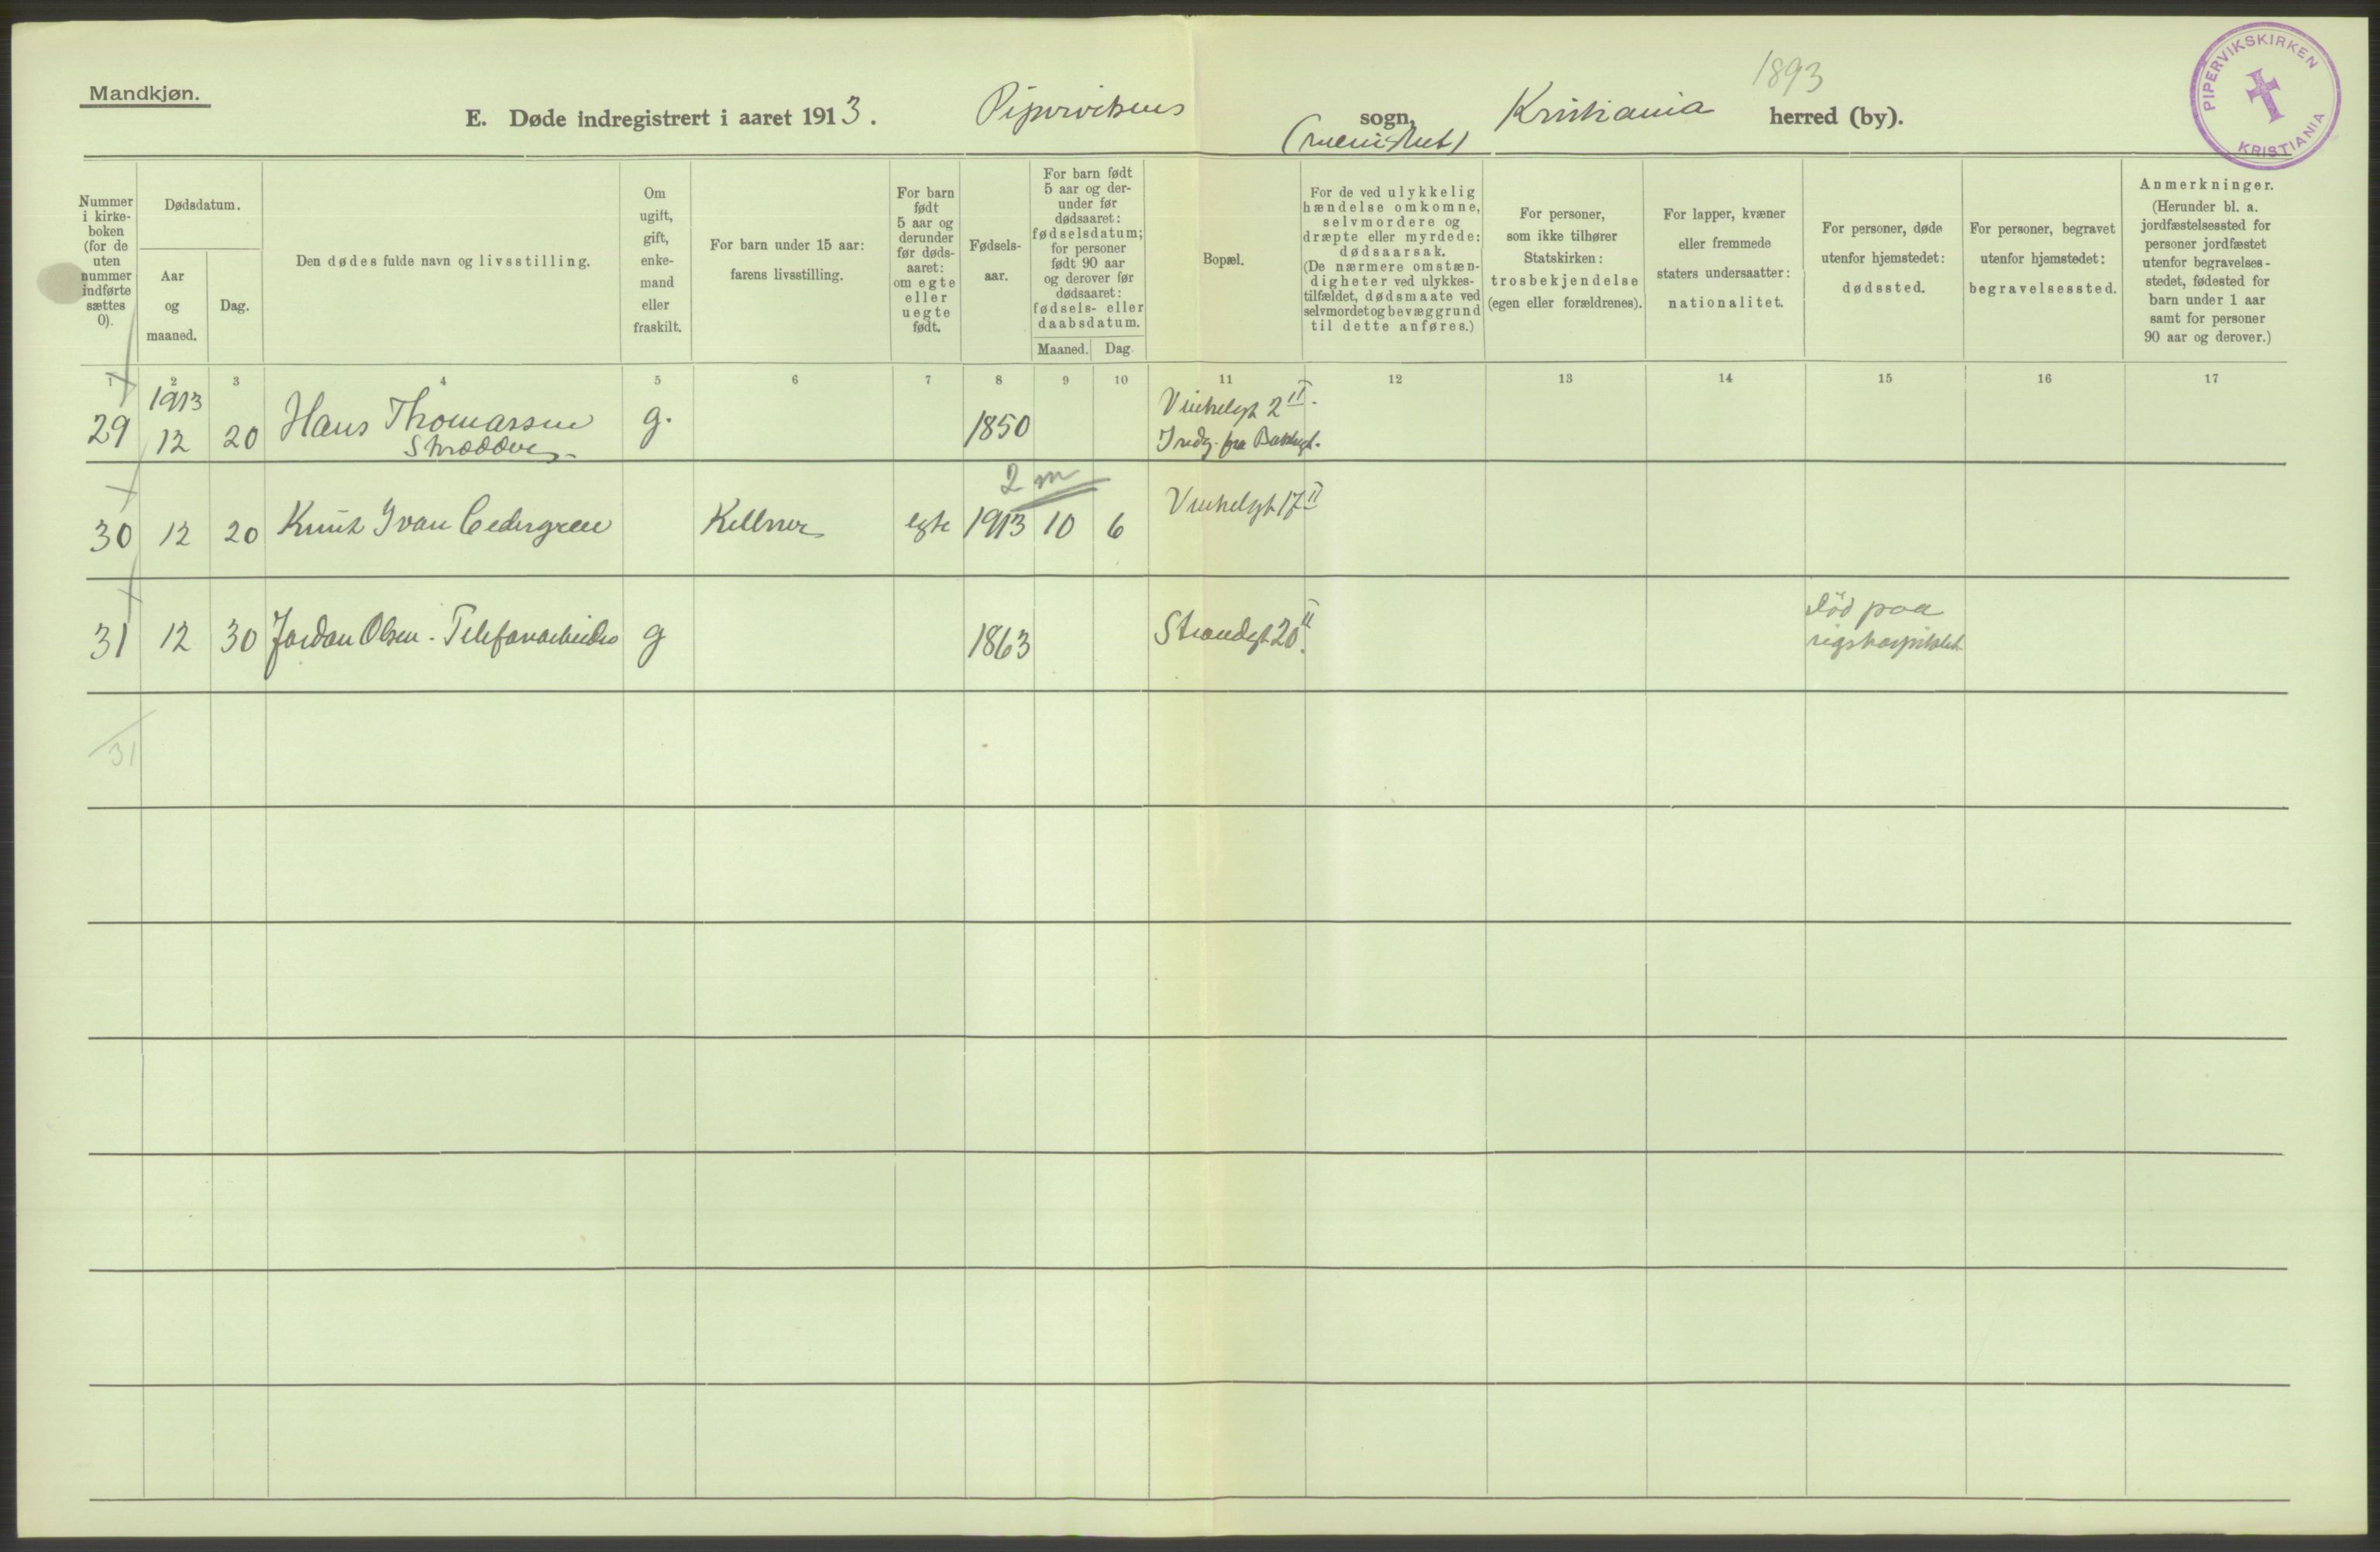 Mandkjøn.
1893
E. Døde indregistrert i aaret 1913. sogn, Kristiania herred (by).
PIPERVIKSKIRKEN
KRISTIANIA
Nummer
i kirke-
boken
(for de
uten
nummer
indførte
sættes
0).
Dødsdatum.
Aar
og
maaned.
Dag.
Den dødes fulde navn og livsstilling.
Om
ugift,
gift,
enke-
mand
eller
fraskilt.
For barn under 15 aar:
farens livsstilling.
For barn
født
5 aar og
derunder
før døds-
aaret:
om egte
eller
uegte
født.
Fødsels-
aar.
For barn født
5 aar og der-
under før
dødsaaret:
fødselsdatum;
for personer
født 90 aar
og derover før
dødsaaret:
fødsels- eller
daabsdatum.
Maaned.
Dag.
Bopæl.
For de ved ulykkelig
hændelse omkomne,
selvmordere og
dræpte eller myrdede:
dødsaarsak.
(De nærmere omstæn-
digheter ved ulykkes-
tilfældet, dødsmaate ved
selvmordet og bevæggrund
til dette anføres.)
For personer,
som ikke tilhører
Statskirken:
trosbekjendelse
(egen eller forældrenes).
For lapper, kvæner
eller fremmede
staters undersaatter:
nationalitet.
For personer, døde
utenfor hjemstedet:
dødssted.
For personer, begravet
utenfor hjemstedet:
begravelsessted.
Anmerkninger.
(Herunder bl. a.
jordfæstelsessted for
personer jordfæstet
utenfor begravelses-
stedet, fødested for
barn under 1 aar
samt for personer
90 aar og derover.)
1 2 3 4 5 6 7 8 9 10 11 12 13 14 15 16 17
1913
29 12 20 Hans Thomassen g. 1850 Vinkelgt 2 II.
Skrædder
fra
2 m
30 12 20 Knut Ivan Cedergren Kellner egte 1913 10 6 Vinkelgt 17 II
31 12 30 Jordan Olsen - Telefonarbeider g 1863 Strandgt 20 II.
død paa
rigshospitalet.
31